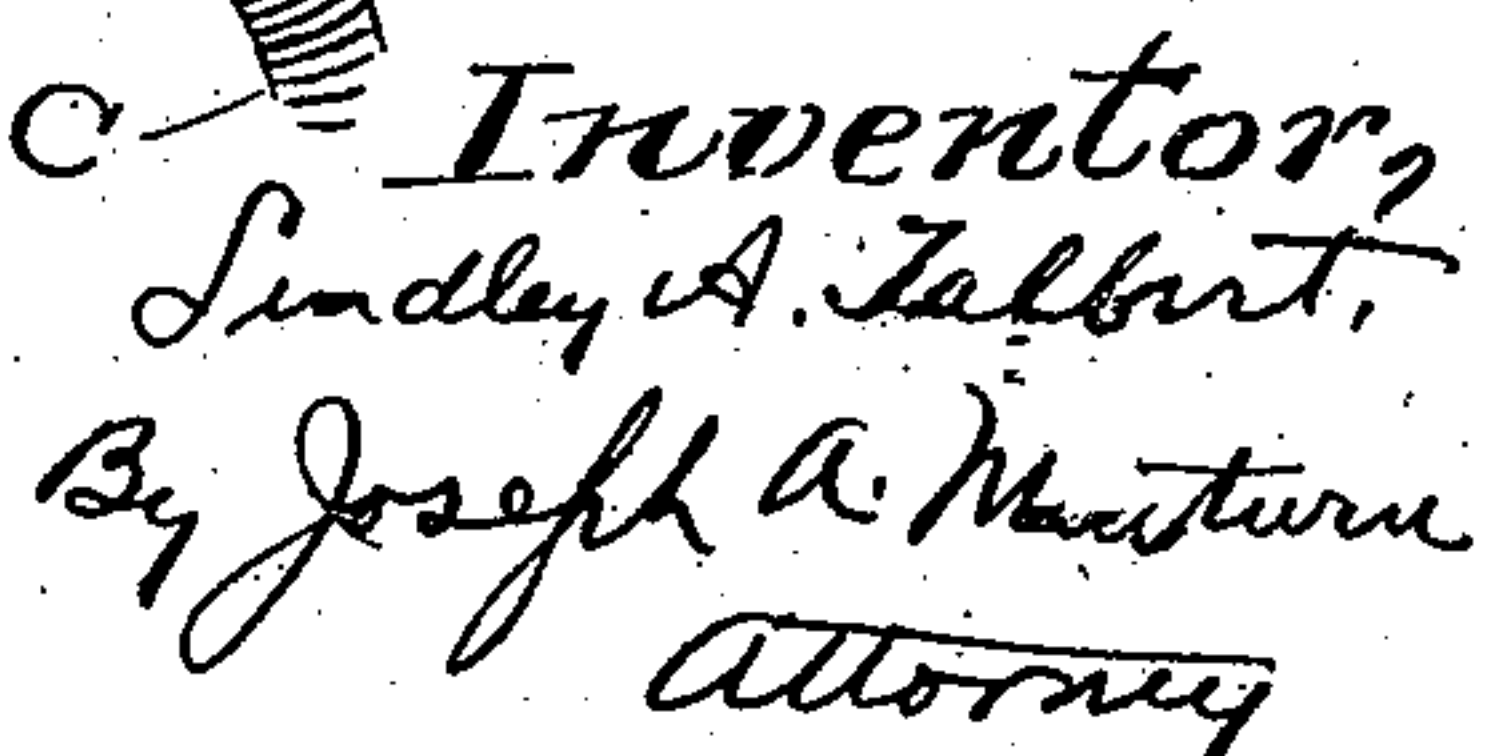 C Inventor,
Lindley A.
By Joseph A. Minturn
Attorney